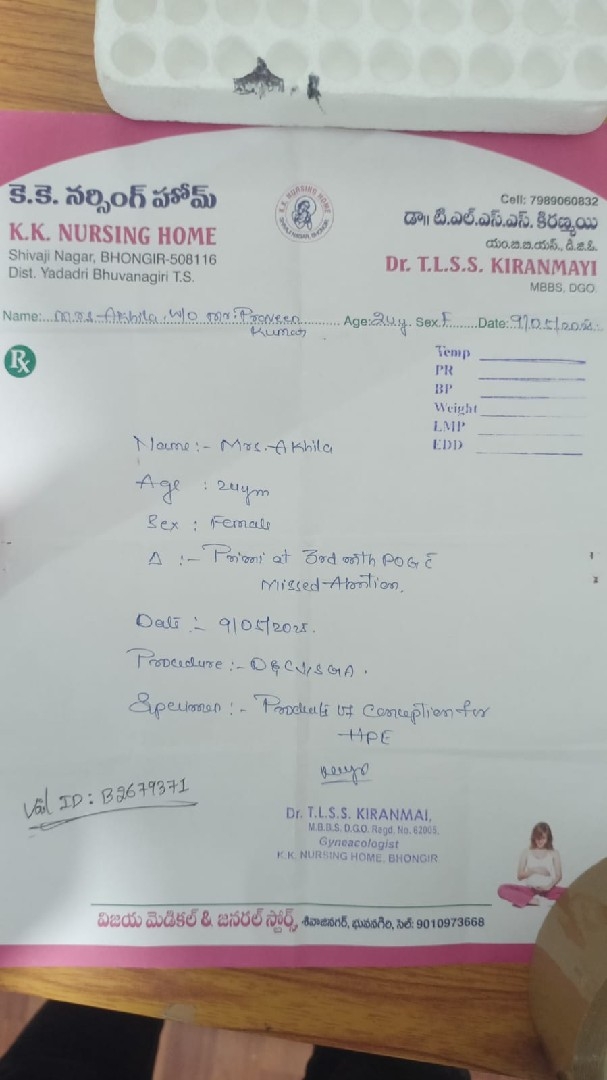 కె.కె. నర్సింగ్ హోమ్
K.K. NURSING HOME
Shivaji Nagar, BHONGIR-508116
Dist. Yadadri Bhuvanagiri T.S.
K.K. NURSING HOME
Cell: 7989060832
డా॥ టి.ఎల్.ఎస్.ఎస్. కిరణ్మయి
యం.బి.బి.యస్., డి.జి.ఓ.
Dr. T.L.S.S. KIRANMAYI
MBBS, DGO.
Name: Mrs. Akhila. W/o Mr: Praveen Kumar Age: 24y. Sex F Date: 9/05/2025
Rx
Temp
PR
BP
Weight
LMP
EDD
Name :- Mrs. Akhila
Age : 24ym
Sex : Female
Δ :- Primi at 3rd mth POG c̄
Missed Abortion.
Date :- 9/05/2025.
Procedure :- D&C
Specimen :- Products of Conception for
HPE
Vail ID : B2679371
Dr. T.L.S.S. KIRANMAI,
M.B.B.S. D.G.O. Regd. No. 62005,
Gyneacologist
K.K. NURSING HOME, BHONGIR
విజయ మెడికల్ & జనరల్ స్టోర్స్, శివాజీనగర్, భువనగిరి, సెల్: 9010973668